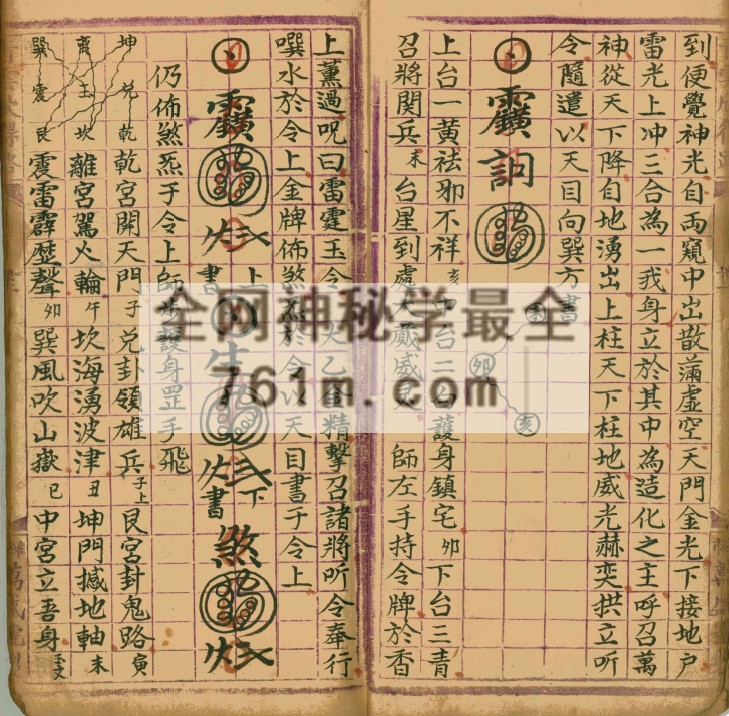 到便覺神光自兩窺中出散滿虛空天門金光下接地户
雷光上冲三合為一我身立於其中為造化之主呼召萬
神從天下降自地湧出上柱天下柱地威光赫奕拱立听
令隨遣以天目向巽方書
未
卯
亥
上台一黃祛邪不祥亥中台三白護身鎮宅卯下台三青
召將関兵未台星到處大 威 師左手持令牌於香
上薰過呪曰雷霆玉令 乙 精擊召諸將听令奉行
噀水於令上金牌佈煞炁於令以天目書于令上
書上
書下
煞
仍佈煞炁于令上師步護身罡手飛
坤 离 巽
兌 玉 震
乾 坎 艮
乾宮開天門子兌卦領雄兵子上艮宮封鬼路寅
離宮駕火輪午坎海湧波津丑坤門撼地軸未
震雷霹歷聲卯巽風吹山嶽巳中宮立吾身
全网神秘学最全
761m.com